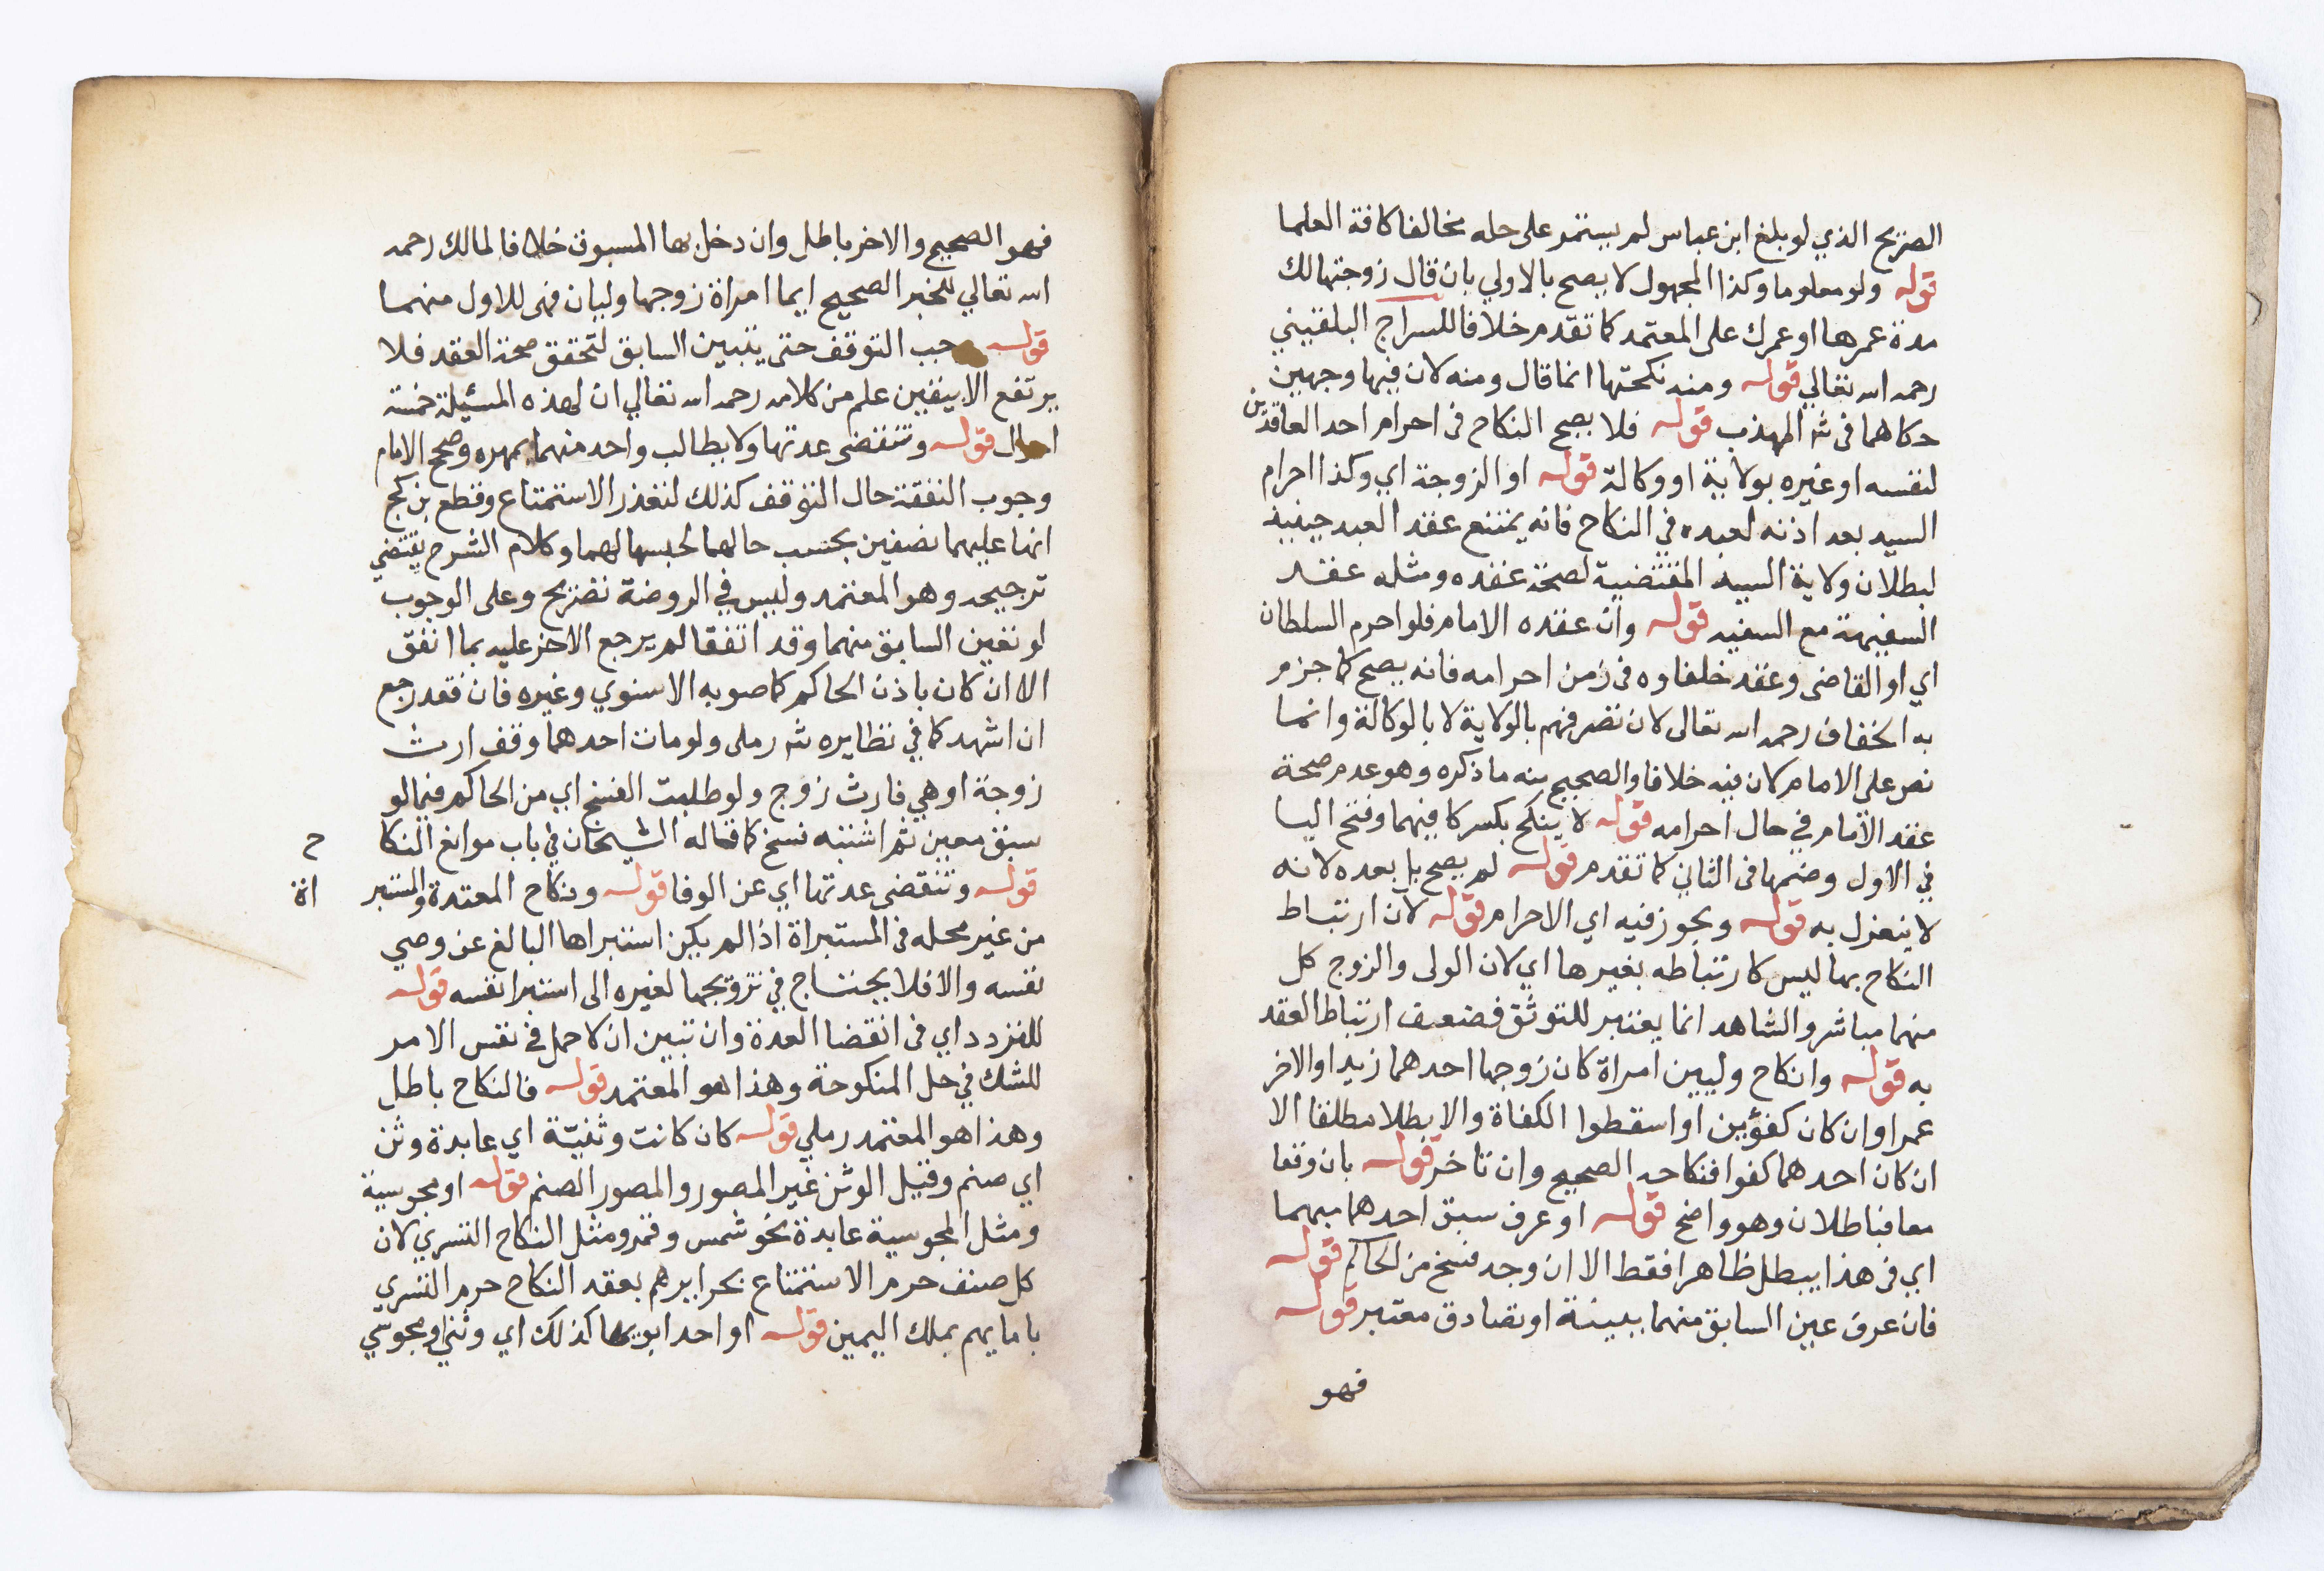 الصريح الذي لو بلغ ابن عباس لم يستمر على حله مخالفا كافة العلما
قوله ولو معلوما وكذا المجهول لا يصح بالاولي بان قال زوجتها لك
مدة عمرها او عمرك على المعتمد كما تقدم خلافا للسراج البلقيني
رحمه الله تعالي قوله ومنه نكحتها انما قال ومنه لان فيها وجهين
حكاهما في شر المهذب قوله فلا يصح النكاح في احرام احد العاقدين
لنفسه او غيره بولاية او وكالة قوله او الزوجة اي وكذا احرام
السيد بعد اذنه لعبده في النكاح فانه يمتنع عقد العبد حينيذ
لبطلان ولاية السيد المقتضية لصحة عقده ومثله عقد
السفيهة مع السفيه قوله وان عقده الامام فلو احرم السلطان
اي او القاضى وعقد خلفاوه في زمن احرامه فانه يصح كما جزم
به الخفاف رحمه الله تعالى لان تصرفهم بالولاية لا بالوكالة وانما
نص على الامام كان فيه خلافا والصحيح منه ما ذكره وهو عدم صحة
عقد الامام في حال احرامه قوله لا ينكح بكسر كا فيهما وفتح اليا
في الاول وضمها في الثاني كما تقدم قوله لم يصح بل بعده لانه
لا ينعزل به قوله ويجوز فيه اي الاحرام قوله لان ارتباط
النكاح بها ليس كارتباطه بغيرها اي لان الولى والزوج كل
منهما مباشر والشاهد انما يعتبر للتوثق فضعف ارتباط العقد
به قوله وانكاح وليين امراة كان زوجها احدهما زيدا والاخر
عمرا وان كان كفؤين او اسقطوا الكفاة والا بطلا مطلقا الا
ان كان احدهما كفوا فنكاحه الصحيح وان تاخر قوله بان وقعا
معا فباطلان وهو واضح قوله او عرف سبق احدهما مبهما
اي في هذا يبطل ظاهرا فقط الا ان وجد فسخ من الحاكم قوله
فان عرف عين السابق منهما ببينة او تصادق معتبر قوله
فهو
فهو الصحيح والاخر باطل وان دخل بها المسبوق خلافا لمالك رحمه
الله تعالي للخبر الصحيح ايما امراة زوجها وليان فهى للاول منهما
قوله وجب التوقف حتى يتبين السابق لتحقق صحة العقد فلا
يرتفع الا بيقين علم من كلامه رحمه الله تعالي ان لهذه المسئيلة خمسة
احوال قوله وتنقضى عدتها ولا يطالب واحد منهما بمهره وصحح الامام
وجوب النفقة حال التوقف كذلك لتعذر الاستمتاع وقطع بن كج
انها عليهما نصفين بحسب حالهما لحبسها لهما وكلام الشرح يقتضي
ترجيحه وهو المعتمد وليس في الروضة تصريح وعلى الوجوب
لو تعين السابق منهما وقد انفقا لم يرجع الاخر عليه بما انفق
الا ان كان باذن الحاكم كما صوبه الاسنوي وغيره فان فقد رجع
ان اشهد كما في نظايره شر رملى ولو مات احدهما وقف ارث
زوجة او هي فارث زوج ولو طلبت الفسخ اي من الحاكم فيما لو
سبق معين ثم اشتبه فسخ كما قاله الشيخان في باب موانع النكا ح
قوله وتنقضى عدتها اي عن الوفا قوله ونكاح المعتدة والمستبر اة
من غير محله في المستبراة اذا لم يكن استبراها البالغ عن وصي
نفسه والا فلا يحتاج في تزويجها لغيره الى استبرا نفسه قوله
للتردد اي في انقضا العدة وان تبين ان لا حمل في نفس الامر
للشك في حل المنكوحة وهذا هو المعتمد قوله فالنكاح باطل
وهذا هو المعتمد رملي قوله كان كانت وثنيّة اي عابدة وثن
اي صنم وقيل الوثن غير المصور والمصور الصنم قوله او مجوسية
ومثل المجوسية عابدة نحو شمس وقمر ومثل النكاح التسري لان
كل صنف حرم الاستمتاع بحرايرهم بعقد النكاح حرم التسري
بامايهم بملك اليمين قوله او احد ابويها كذلك اي وثني او مجوسي